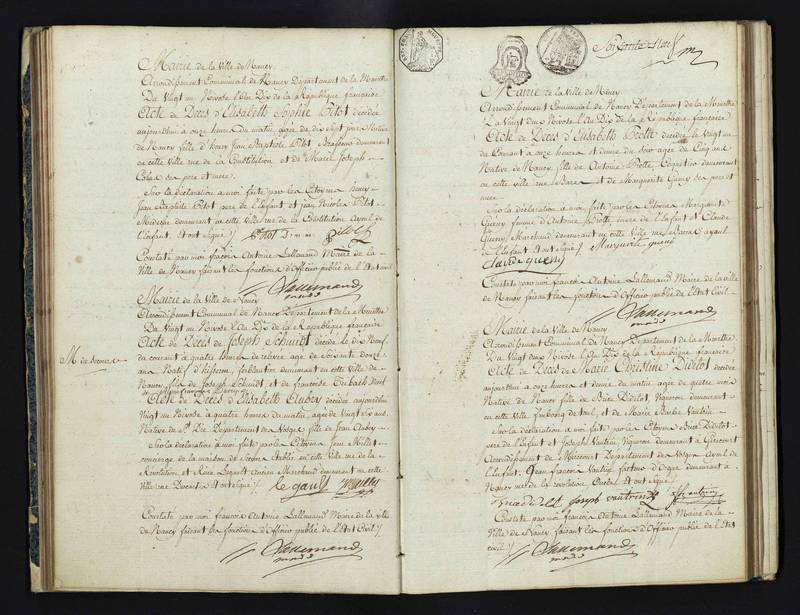 Mairie de la Ville de Nancy
Arrondissement Communal de Nancy Département de la Meurthe
Du Vingt un Nivose l'An Dix de la République française
Acte de Décès d'Elisabeth Sophie Pitot décédée
aujourdhui a onze heures du matin agée de dix sept jours Native
de Nancy fille d'henry Jean Baptiste Pitot demeurant
en cette ville rue de la Constitution et de Marie Joseph
Colas ses père et mere
Sur la déclaration a moi faite par les Citoyens henry
Jean Baptiste Pitot pere de l'Enfant et jean Nicolas Pitot
Médecin demeurant en cette Ville rue de la Constitution Ayeul de
l'Enfant et ont signé
Pitot D.m.m. Pitot
Constaté par moi françois Antoine Lallemand Maire de la
Ville de Nancy faisant les fonctions d'Officier public de l'Etat civil
Lallemand
Mairie de la Ville de Nancy
Arrondissement Communal de Nancy Département de la Meurthe
Du Vingt un Nivose l'An Dix de la République française
Acte de Décès de Joseph Schmidt décédé le dix Neuf
du courant a quatre heures de relevée agé de soixante douze
ans Natif d' ferblantier demeurant en cette ville de
Nancy, fils de Joseph Schmidt et de françoise
M. de Secours
Acte de Décès d'Elisabeth Aubry décédée aujourdhui
Vingt un Nivose à quatre heures du matin agée de Vingt six ans
Native de St. Dié Département des Vosges fille de Jean Aubry
Sur la déclaration à moi faite par les Citoyens Jean Millet
concierge de la maison de Secours établie en cette Ville rue de la
Révolution et Legault Ancien Marchand demeurant en cette
Ville rue et ont signé
le gault Millet
Constaté par moi françois Antoine Lallemand Maire de la ville
de Nancy faisant les fonctions d'Officier public de l'Etat Civil
Lallemand
Soixante
Mairie de la Ville de Nancy
Arrondissement Communal de Nancy Département de la Meurthe
Du Vingt deux Nivose l'An Dix de la République française
Acte de Décès d'Elisabeth Biotte décédée le Vingt un
du Courant à onze heures et demie du soir agée de Cinq ans
Native de Nancy, fille de Antoine Biotte, demeurant
en cette ville rue Bara et de Marguerite Guény ses pere et
mere
Sur la déclaration à moi faite par les Citoyens Marguerite
Guény femme d'Antoine Biotte mere de l'Enfant et Claude
Guény Marchand demeurant en cette Ville rue Bara ayeul
de l'Enfant et ont signé
Marguerite guenÿ
Claude Guenÿ
Constaté par moi françois Antoine Lallemand Maire de la ville
de Nancy faisant les fonctions d'Officier public de l'Etat Civil
Lallemand
Mairie de la Ville de Nancy
Arrondissement Communal de Nancy Département de la Meurthe
Du Vingt deux Nivose l'An Dix de la République française
Acte de Décès de Marie Christine Didelot décédée
aujourdhui à onze heures et demie du matin agée de quatre mois
Native de Nancy fille de Brice Didelot Vigneron demeurant
en cette Ville fauxbourg de toul, et de Marie Barbe Vautrin
Sur la déclaration à moi faite par les Citoyens Brice Didelot
pere de l'Enfant et Joseph Vautrin, Vigneron demeurant à
Arrondissement de Mirecourt Département des Vosges Ayeul de
l'Enfant, Jean françois Vautrin facteur d'Orgue demeurant à
Nancy rue de la révolution Oncle et ont signé
joseph vautrin
Constaté par moi françois Antoine Lallemand Maire de la
Ville de Nancy faisant les fonctions d'Officier public de l'Etat
civil
Lallemand